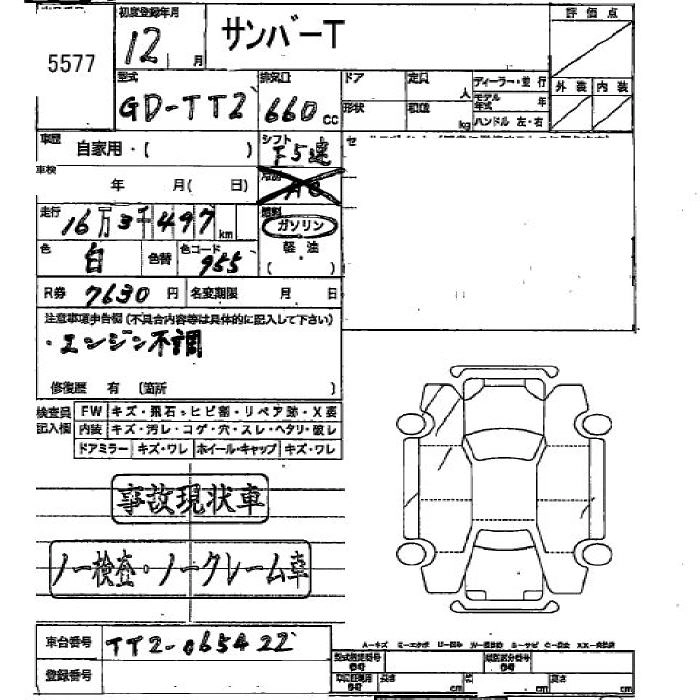 5577
初度登録年月
12 月
サンバーT
評価点
型式
GD-TT2
排気量
660 cc
ドア
定員 人
ディーラー・並行
外装 内装
形状
積載 kg
モデル年式 年
ハンドル 左・右
車歴
自家用・( )
シフト
F5速
車検
年 月( 日)
冷房
AC
走行
16万3千497 km
燃料
ガソリン
軽油
( )
色
白
色替
色コード
955
R券 7630 円
名変期限 月 日
注意事項申告欄(不具合内容等は具体的に記入して下さい)
・エンジン不調
修復歴 有 (箇所 )
検査員記入欄
FW キズ・飛石・ヒビ割・リペア跡・X要
内装 キズ・汚レ・コゲ・穴・スレ・ヘタリ・破レ
ドアミラー キズ・ワレ ホイール・キャップ キズ・ワレ
事故現状車
ノー検査・ノークレーム車
車台番号 TT2-065422
登録番号
型式指定番号
類別区分番号
長さ cm
cm
高さ cm